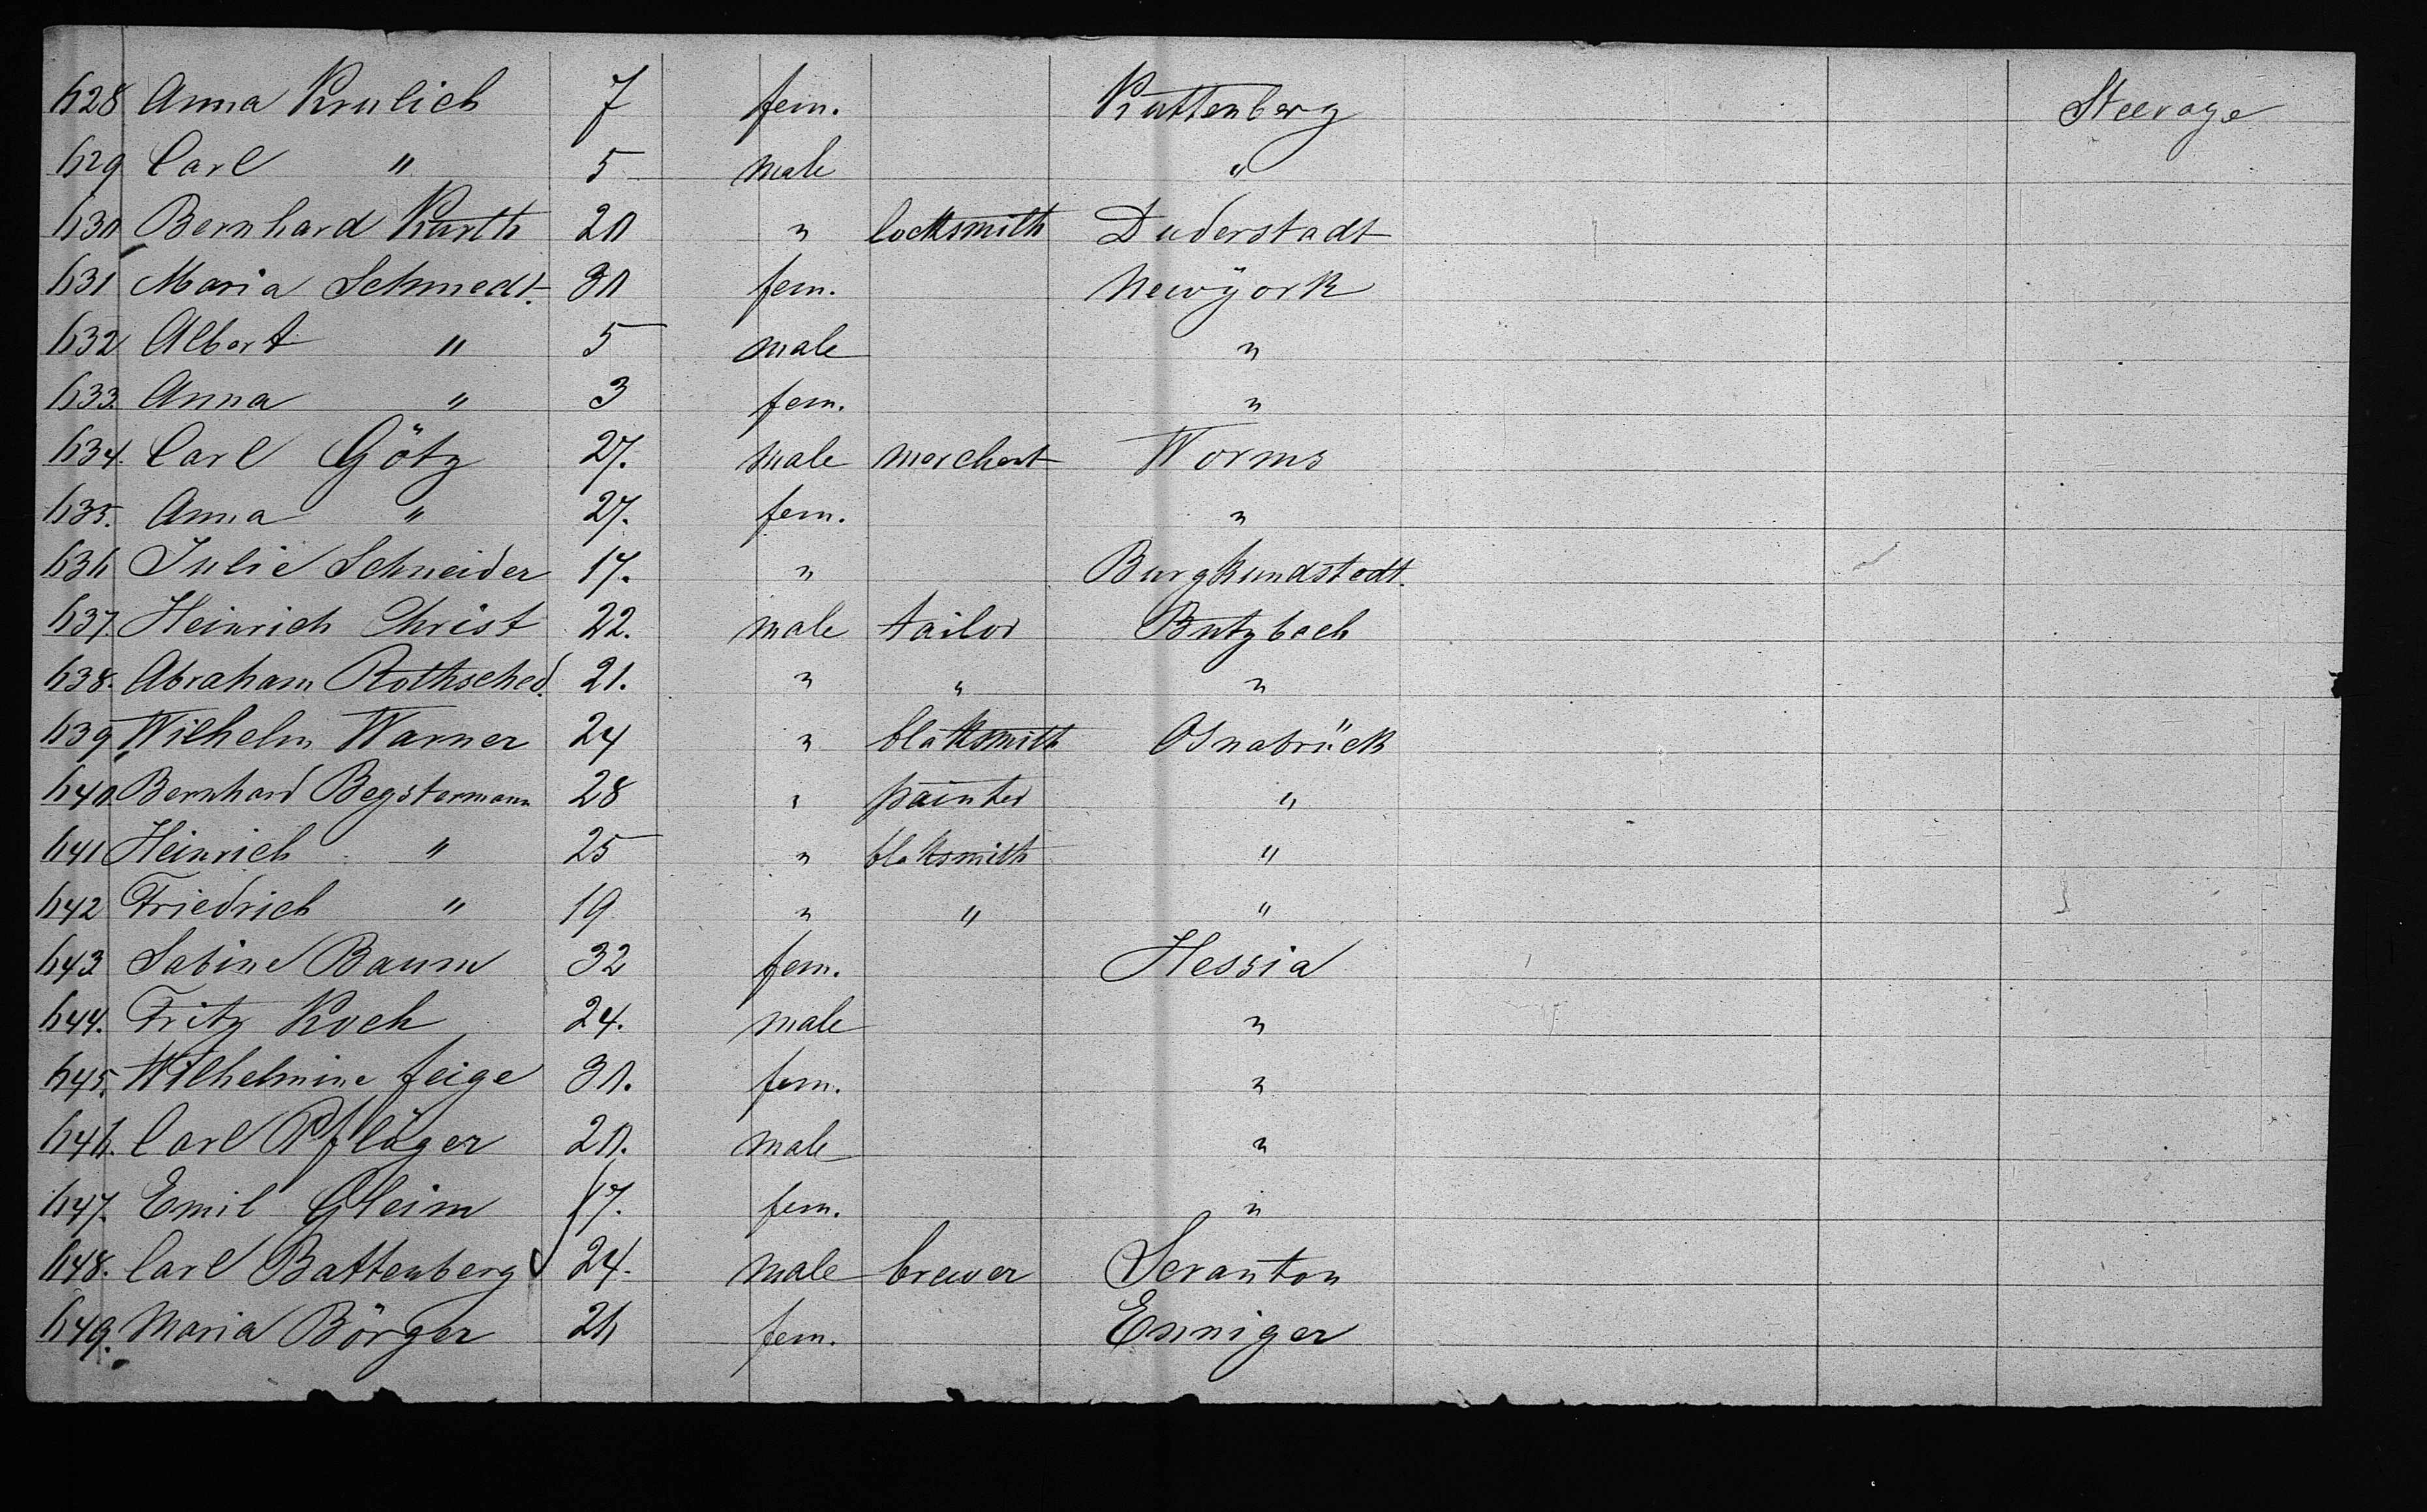 628 Anna Krulich 7 fem. Kuttenberg Steerage
629 Carl " 5 male "
630 Bernhard Kurth 20 " locksmith Duderstadt
631 Maria Schmedt. 30 fem. Newyork
632 Albert " 5 male "
633. Anna " 3 fem. "
634. Carl Götz 27. male merchant Worms
635. Anna " 27. fem. "
636 Julie Schneider 17. " Burgkundstadt.
637. Heinrich Christ 22. male tailor Butzbach
638. Abraham Rothsched. 21. " " "
639 Wilhelm Warner 24 " blaksmith Osnabrück
640 Bernhard Begstermann 28 " painter "
641 Heinrich " 25 " blaksmith "
642 Friedrich " 19 " " "
643 Sabine Baum 32 fem. Hessia
644. Fritz Koch 24. male "
645. Wilhelmine feige 30. fem. "
646. Carl Pflüger 20. male "
647. Emil Gleim 17. fem. "
648. Carl Battenberg 24. male brewer Scranton
649. Maria Börger 26 fem. Enniger